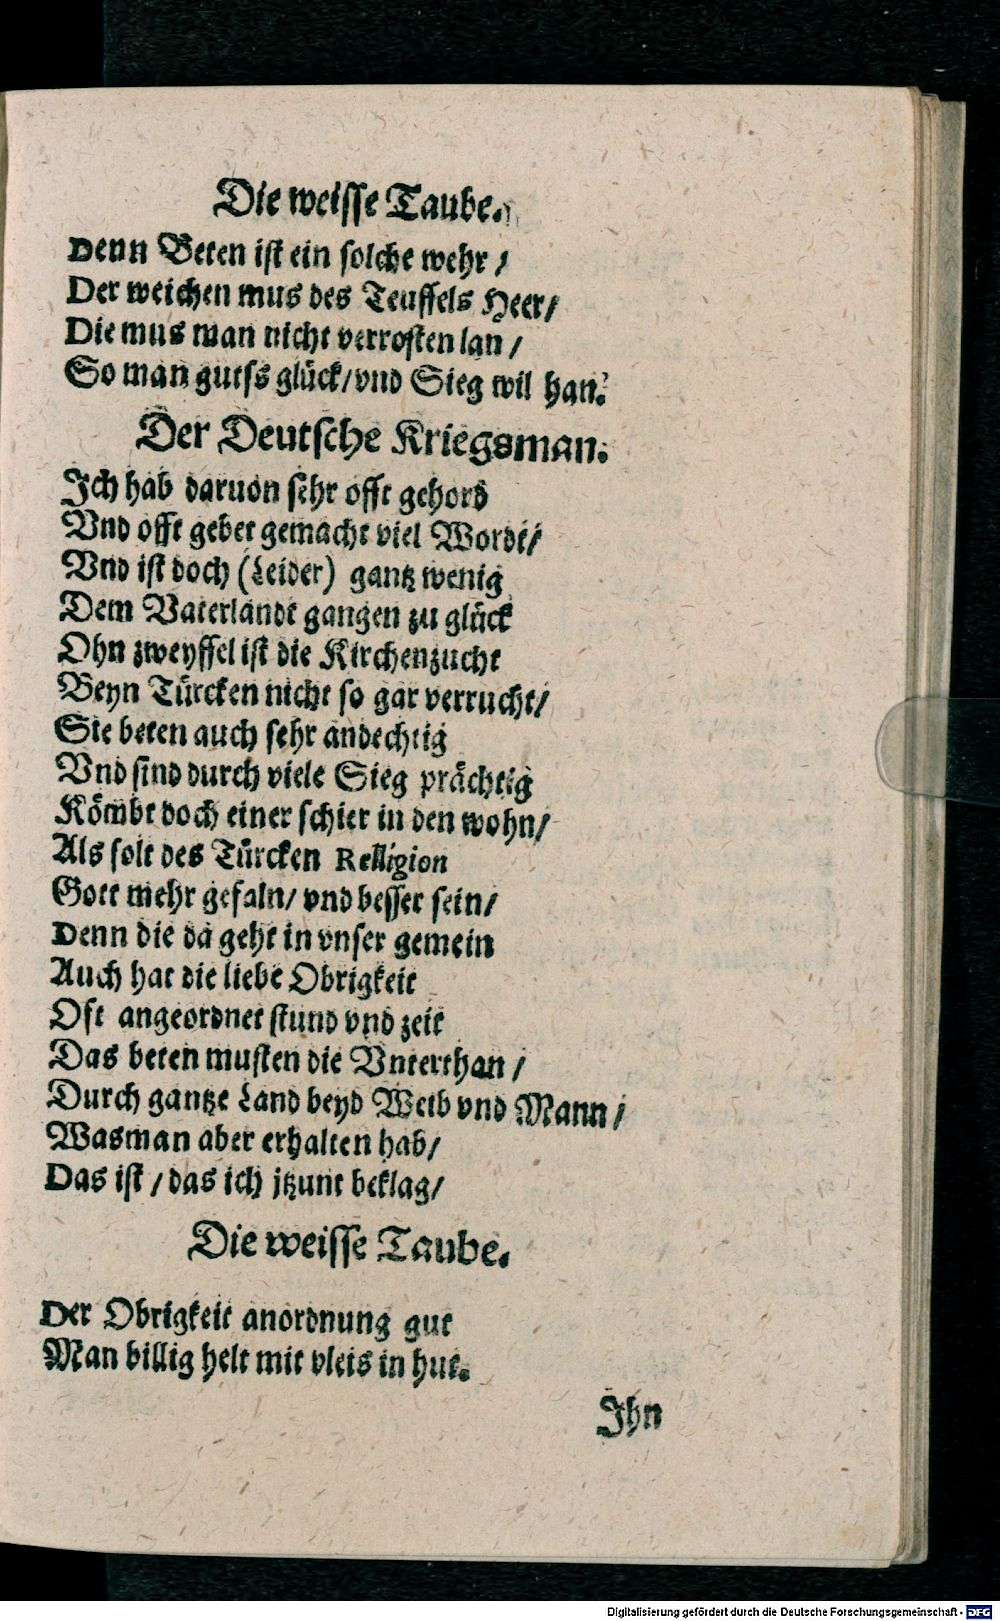 Die weisse Taube.
Denn Beten ist ein solche wehr /
Der weichen mus des Teuffels Heer/
Die mus man nicht verrosten lan /
So man gutss glück/ vnd Sieg wil han.
Der Deutsche Kriegsman.
Ich hab daruon sehr offt gehord
Vnd offt gebet gemacht viel Wordt/
Vnd ist doch (Leider) gantz wenig
Dem Vaterlandt gangen zu glück
Ohn zweyffel ist die Kirchenzucht
Beyn Türcken nicht so gar verrucht/
Sie beten auch sehr andechtig
Vnd sind durch viele Sieg prächtig
Kömbt doch einer schier in den wohn/
Als solt des Türcken Relligion
Gott mehr gefaln/ vnd besser sein/
Denn die da geht in vnser gemein
Auch hat die liebe Obrigkeit
Oft angeordnet stund vnd zeit
Das beten musten die Vnterthan /
Durch gantze Land beyd Weib vnd Mann /
Wasman aber erhalten hab/
Das ist / das ich jtzunt beklag/
Die weisse Taube.
Der Obrigkeit anordnung gut
Man billig helt mit vleis in hut.
Ihn
Digitalisierung gefördert durch die Deutsche Forschungsgemeinschaft - DFG